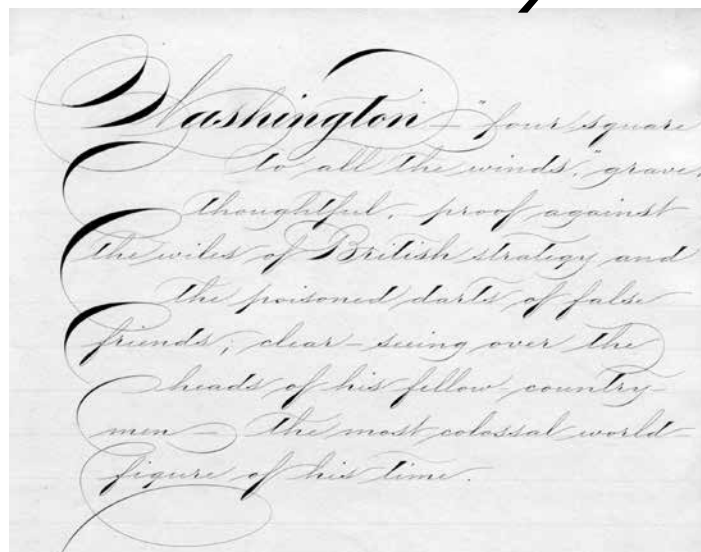 Washington — "four square
to all the winds," grave,
thoughtful, proof against
the wiles of British strategy and
the poisoned darts of false
friends; clear-seeing over the
heads of his fellow country-
men — the most colossal world-
figure of his time.